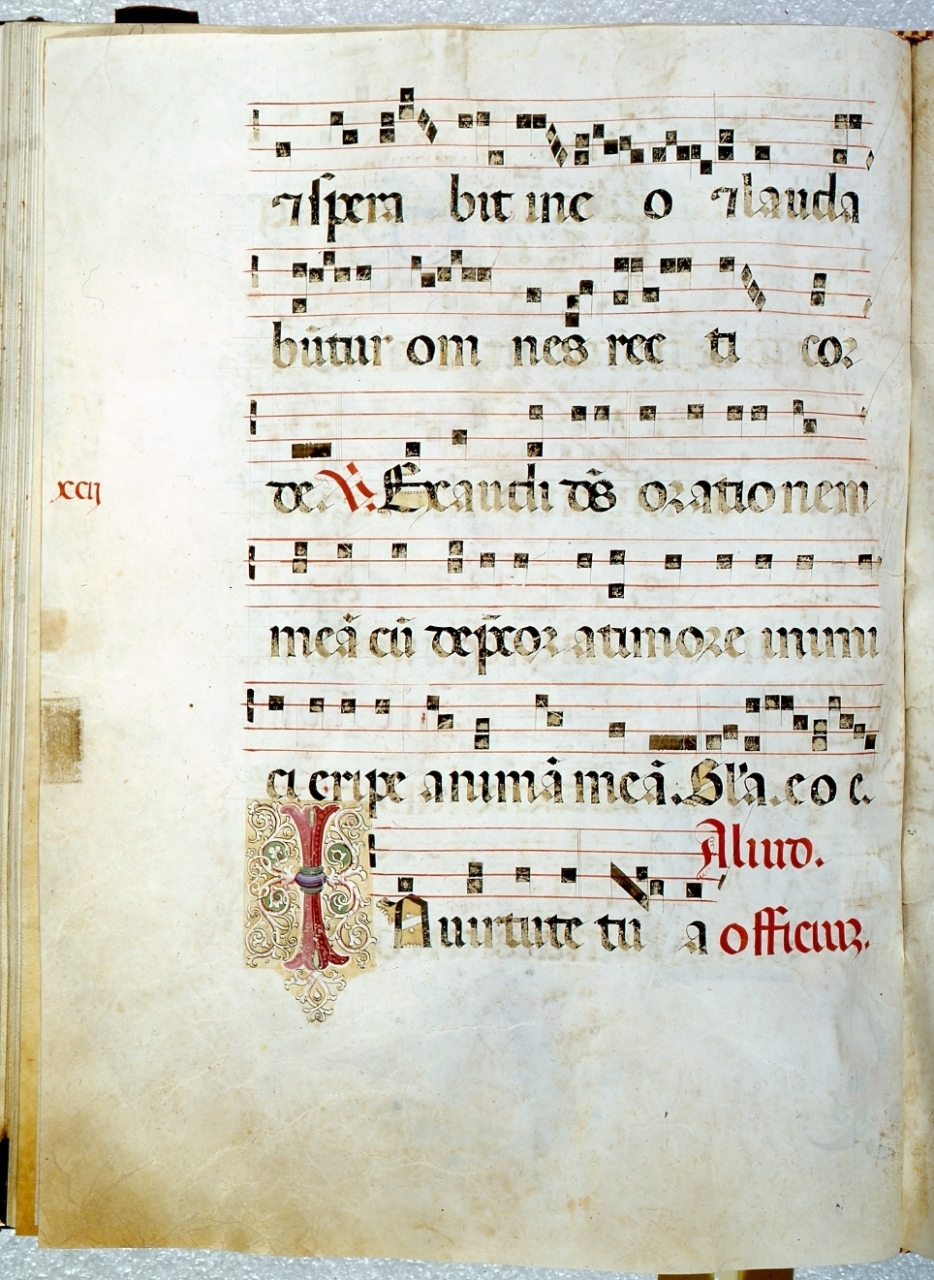 ⁊ spera bit in e o ⁊ lauda
bu̅tur om nes rec ti cor
xcij
de. ℣. Exaudi de̅s orationem
mea̅ cu̅ dep̅cor a timore inimi
ci eripe anima̅ mea̅. Gl'a. e o e.
Aliud.
IN uirtute tu a officiuz.